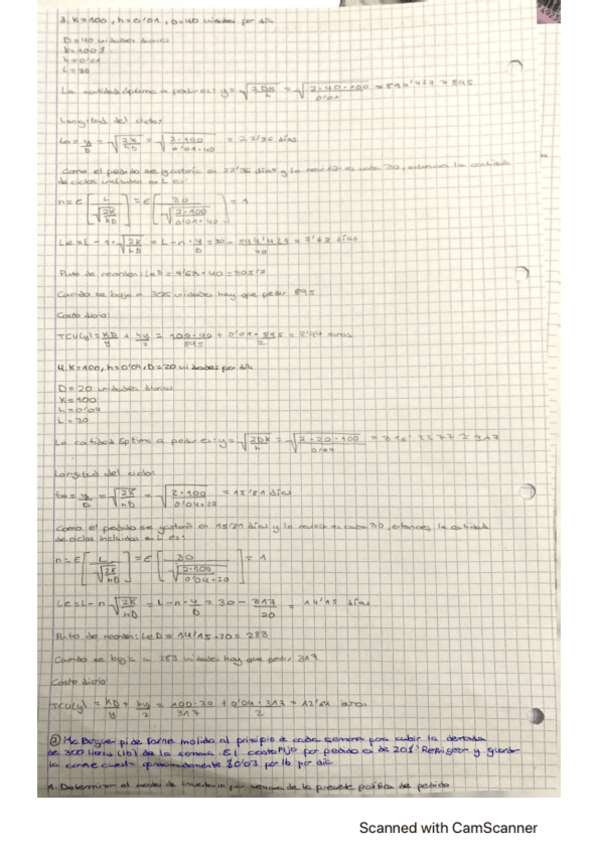 3. K=100, h=0'01, D=40 unidades por día
D=40 unidades diarias
K=100$
h=0'01
L=30
La cantidad óptima a pedir es: y=√(2DK/h) = √(2·40·100/0'01) = 894'427 ≈ 895
Longitud del ciclo:
t₀ = y/D = √(2K/hD) = √(2·100/0'01·40) = 22'36 días
Como el pedido se gastaría en 22'36 días y la revisión es cada 30, entonces la cantidad
de ciclos incluidos en L es:
n=E[L/√(2K/hD)] = E[30/√(2·100/0'01·40)] = 1
Le=L-n·√(2K/hD) = L-n·y/D = 30 - 894'427/40 = 7'63 días
Punto de reorden: LeD = 7'63·40 = 305'2
Cuando se baja a 305 unidades hay que pedir 895
Costo diario:
TCU(y) = KD/y + hy/2 = 100·40/895 + 0'01·895/2 = 8'94 euros
4. K=100, h=0'04, D=20 unidades por día
D=20 unidades diarias
K=100
h=0'04
L=30
La cantidad óptima a pedir es: y=√(2DK/h) = √(2·20·100/0'04) = 316'2277 ≈ 317
Longitud del ciclo:
t₀ = y/D = √(2K/hD) = √(2·100/0'04·20) = 15'81 días
Como el pedido se gastaría en 15'81 días y la revisión es cada 30, entonces la cantidad
de ciclos incluidos en L es:
n=E[L/√(2K/hD)] = E[30/√(2·100/0'04·20)] = 1
Le=L-n√(2K/hD) = L-n·y/D = 30 - 317/20 = 14'15 días
Punto de reorden: LeD = 14'15·20 = 283
Cuando se baja a 283 unidades hay que pedir 317
Costo diario
TCU(y) = KD/y + hy/2 = 100·20/317 + 0'04·317/2 = 12'64 euros
② Mc Burger pide carne molida al principio de cada semana para cubrir la demanda
de 300 libras (lb) de la semana. El costo fijo por pedido es de 20$. Refrigerar y guardar
la carne cuesta aproximadamente $0'03 por lb por día
1. Determinar el costo de inventario por semana de la presente política de pedido
Scanned with CamScanner